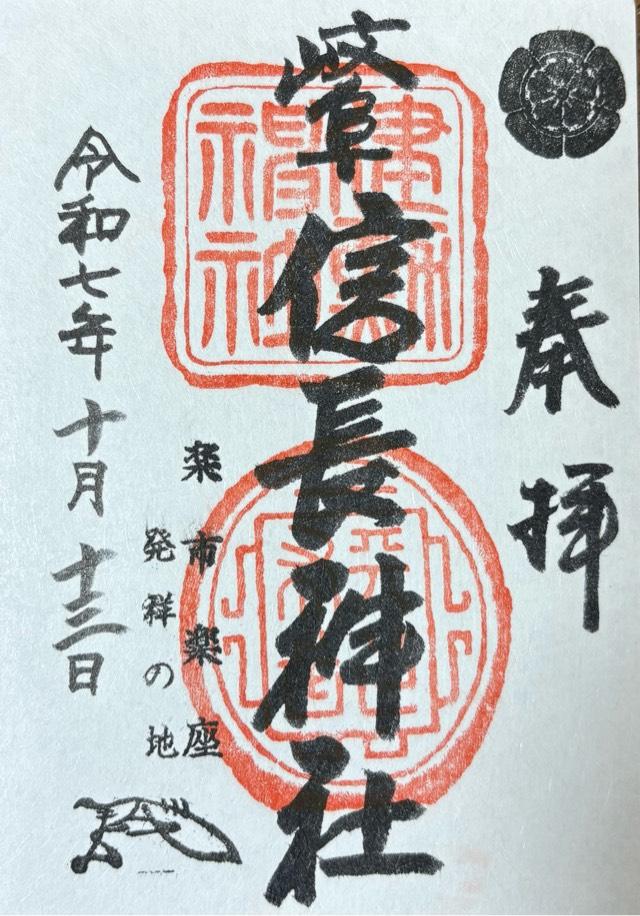 奉拝
岐阜信長神社
楽市楽座
発祥の地
令和七年十月十三日